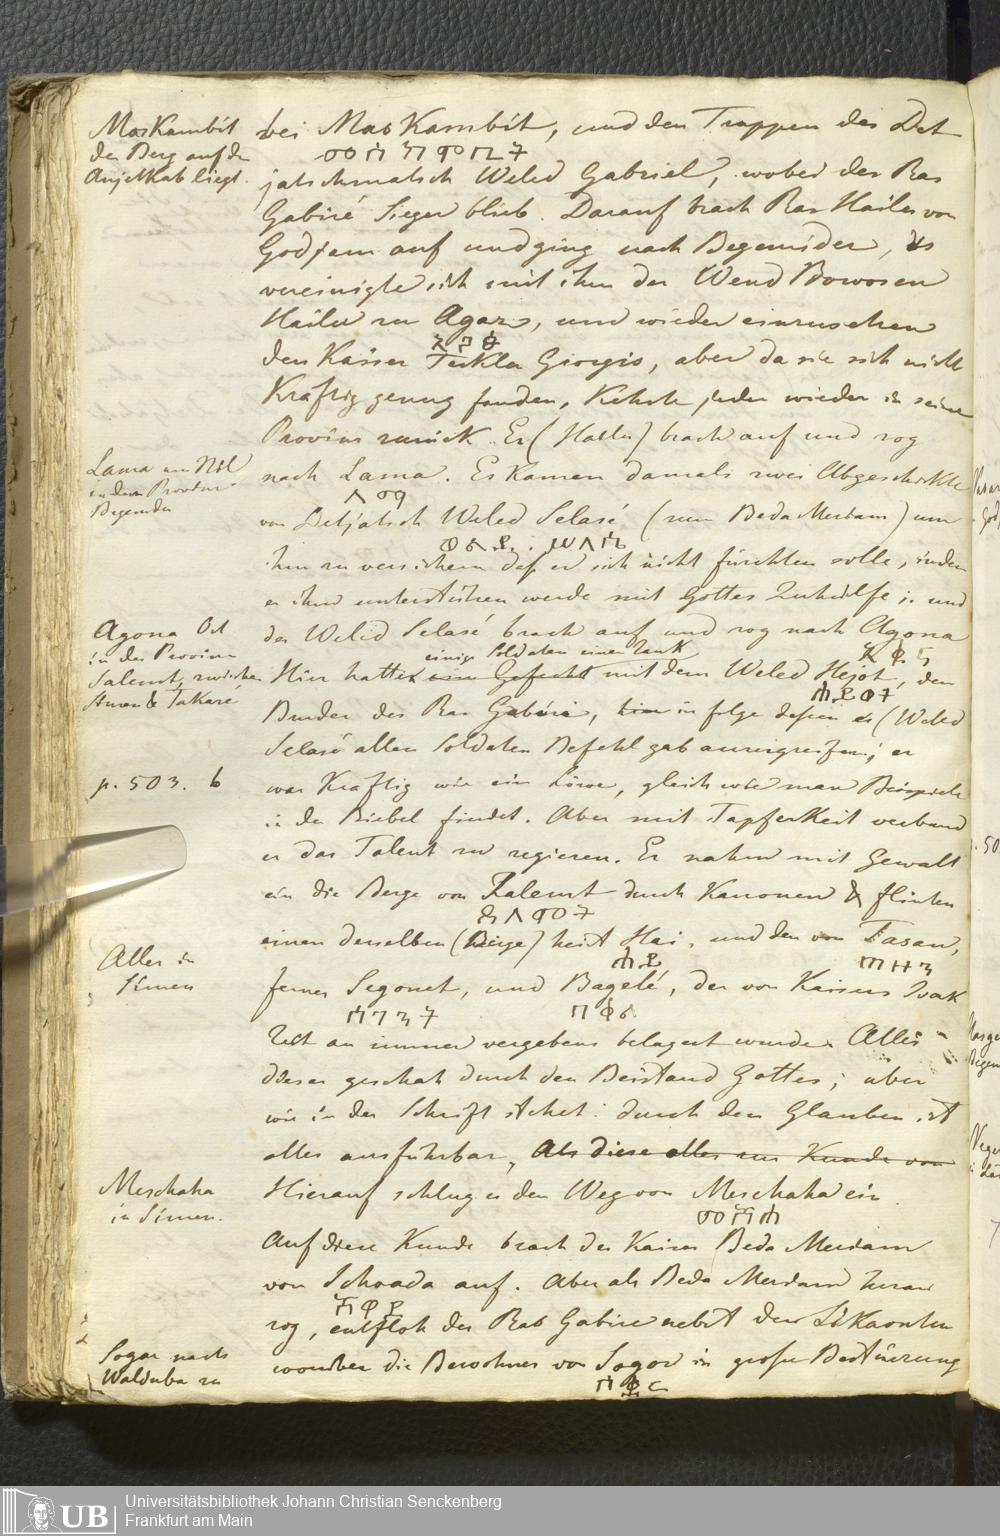 MasKambit
der Berg auf dem
AnjetKab liegt.
bei MasKambit, und den Truppen des Det
jatschmatsch Weled Gabriel, wobei der Ras
Gabiré Sieger blieb. Darauf brach Ras Hailu von
Godjam auf und ging nach Begemider, es
vereinigte sich mit ihm der Wend Bowosen
Hailu zu Agar, um wieder einzusetzen
den Kaiser Teklu Giorgis, aber da sie sich nicht
Kräftig genug fanden, Kehrte jeder wieder in seine
Provinz zurück. Er (Hailu) brach auf und zog
Lama am Nil
in dem Provinz
Begemder
nach Lama. Es Kamen damals zwei Abgeschickte
ለማ
von Detjatsch Weled Selasé (zum Beda Meriam) um
ወልደ : ሥላሴ
ihm zu versichern daß er sich nicht fürchten solle, indem
er ihm unterstützen werde mit Gottes Zuhülfe; und
Agona Ort
in der Provinz
Salemt, zwischen
Awen & Takazé
der Weled Selasé brach auf und zog nach Agona
einige Soldaten einen Zank
Hier hatte ein Gefecht mit dem Weled Hejot, dem
Bruder des Ras Gabiré, hier in folge dessen er (Weled
Selasé allen Soldaten Befehl gab anzugreifen; er
p. 503. b
war Kräftig wie ein Löwe, gleich wie man Beispiele
in der Biebel findet. Aber mit TapferKeit verband
er das Talent zu regieren. Er nahm mit Gewalt
ein die Berge von Zalemt durch Kanonen & flinten
ጸለምት
einen derselben (Berge) heist Hai, und den von Tasan,
Alles in
Simen
ferner Segonet, und Bagelé, der von Kaisers Isak
Zeit an immer vergebens belagert wurde. Alles
dieses geschah durch den Beistand Gottes; aber
wie in der Schrift stehet: durch den Glauben ist
alles ausführbar, Als diese alles zur Kunde von
Meschaha
in Simen.
Hierauf schlug er den Weg von Meschaha ein
መሻሐ
Auf diese Kunde brach der Kaiser Beda Meriam
von Schoada auf. Aber als Beda Meriam heran
zog, entfloh der Ras Gabire nebst den Likaonten
Sogar nach
Walduba zu
worüber die Bewohner von Sogor in große Bestürzung
Universitätsbibliothek Johann Christian Senckenberg
Frankfurt am Main
UB